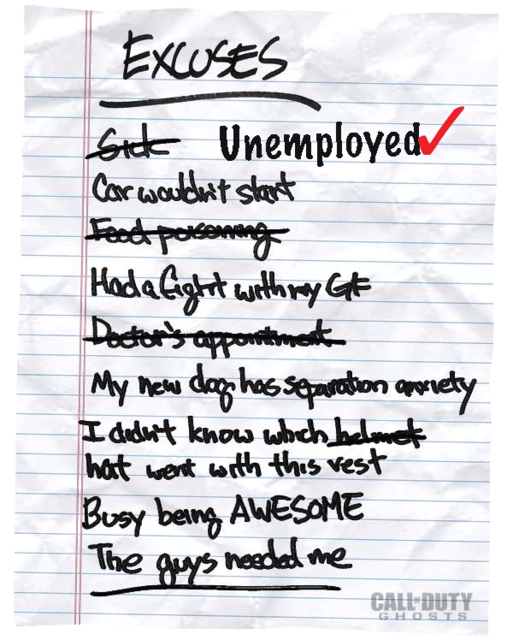 EXCUSES
Sick Unemployed
Car wouldn't start
Food poisoning
Had a fight with my GF
Doctor's appointment
My new dog has separation anxiety
I didn't know which helmet
hat went with this vest
Busy being AWESOME
The guys needed me
CALL OF DUTY
GHOSTS